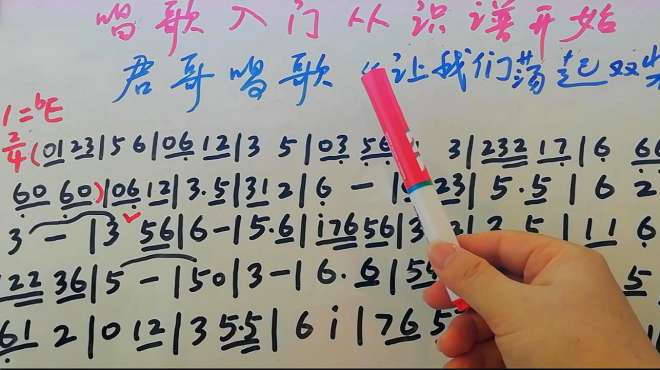 唱歌入门从识谱开始
君哥唱歌《让我们荡起双
1=ᵇE
2/4 (0123|56|0612|3 5|03 56 3|232 17|6 6
60 60)|0612|3·5|312|6 - | 23|5·5|6 2
3 - |3 56|6-|5·6|i7656|3 3|2 5|11 6
22 36|5 - |50|3-|6·6|5 5
61 2|0 12|3 5·5|6 i|76 5